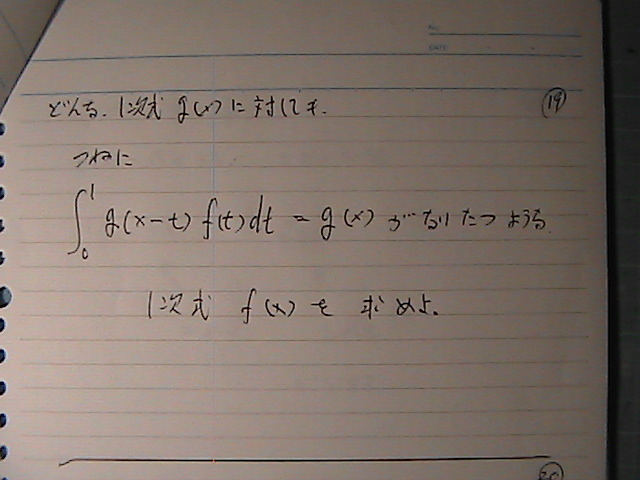 NO.
DATE
どんな、1次式 g(x)に対しても、 ⑲
つねに
∫₀¹ g(x-t) f(t)dt = g(x) がなりたつような、
1次式 f(x)を 求めよ。
⑳